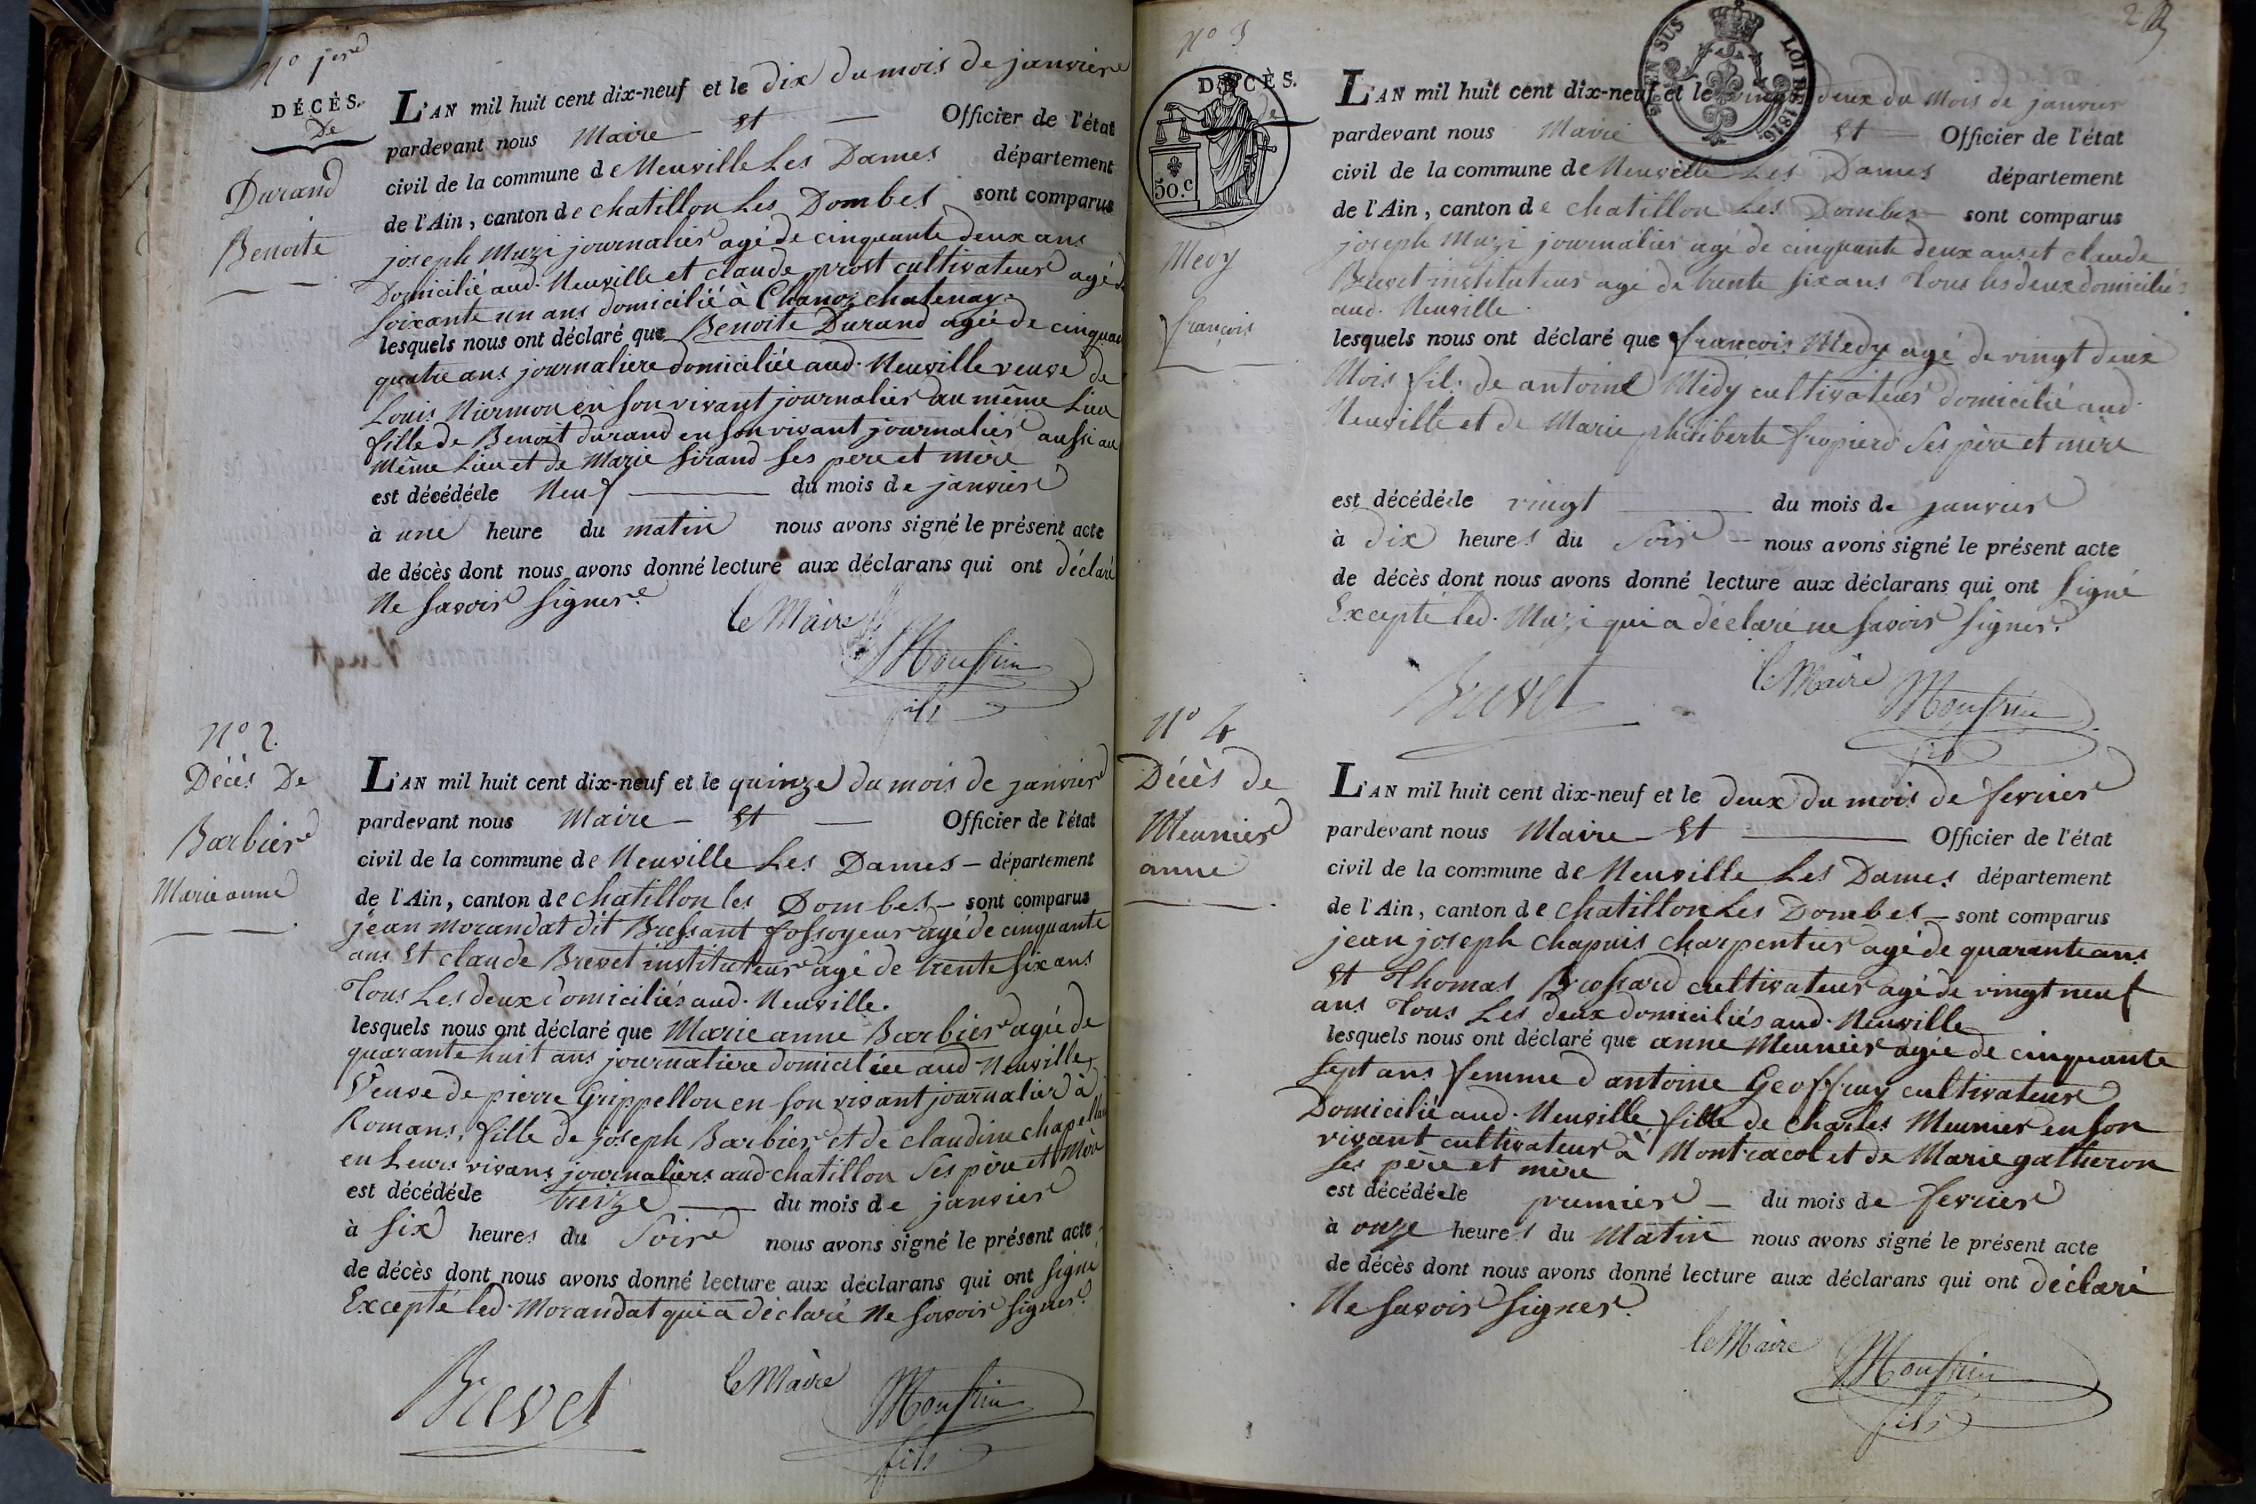 N° 1er
DÉCÈS.
De
Durand
Benoite
L'AN mil huit cent dix-neuf et le dix du mois de janvier
pardevant nous Maire et Officier de l'état
civil de la commune de Neuville Les Dames département
de l'Ain, canton de chatillon Les Dombes sont comparus
joseph Muzi journalier agé de cinquante deux ans
Domicilié aud. Neuville et claude prost cultivateur agé de
soixante un ans domicilié à Chanoz chatenay.
lesquels nous ont déclaré que Benoite Durand agée de cinquan
quatre ans journaliere domiciliée aud. Neuville veuve de
Louis Niermon en son vivant journalier au même Lieu
fille de Benoit durand en son vivant journalier aussi au
même Lieu et de Marie sirand ses pere et mere
est décédée le Neuf du mois de janvier
à une heure du matin nous avons signé le présent acte
de décès dont nous avons donné lecture aux déclarans qui ont déclaré
Ne savoir signer.
le Maire
Monfrin
fils
N° 2.
Décès De
Barbier
Marie anne
L'AN mil huit cent dix-neuf et le quinze du mois de janvier
pardevant nous Maire et Officier de l'état
civil de la commune de Neuville Les Dames département
de l'Ain, canton de chatillon les Dombes sont comparus
jean morandat dit Bressant fossoyeur agé de cinquante
ans et claude Brevet instituteur agé de trente six ans
Tous Les deux domiciliés aud. Neuville.
lesquels nous ont déclaré que Marie anne Barbier agée de
quarante huit ans journaliere domiciliée aud Neuville
Veuve de pierre Grippellon en son vivant journalier à
Romans, fille de joseph Barbier et de claudine chapellan
en Leurs vivans journaliers aud chatillon ses père et mère
est décédée le treize du mois de janvier
à six heures du soire nous avons signé le présent acte
de décès dont nous avons donné lecture aux déclarans qui ont signé
Excepté led. Morandat qui a déclaré Ne savoir signer.
Brevet
le Maire
Monfrin
fils
2
N° 3
DÉCÈS.
50.c
EN SUS
LOI DE 1816.
Medy
françois
L'AN mil huit cent dix-neuf et le vingt deux du Mois de janvier
pardevant nous Maire et Officier de l'état
civil de la commune de Neuville Les Dames département
de l'Ain, canton de chatillon Les Dombes sont comparus
joseph Muzi journalier agé de cinquante deux ans et claude
Brevet instituteur agé de trente six ans Tous les deux domiciliés
aud. Neuville.
lesquels nous ont déclaré que françois Medy agé de vingt deux
Mois fils de antoine Medy cultivateur domicilié aud.
Neuville et de Marie philiberte ses père et mère
est décédé le vingt du mois de janvier
à dix heures du soir nous avons signé le présent acte
de décès dont nous avons donné lecture aux déclarans qui ont signé
Excepté led. Muzi qui a déclaré ne savoir signer.
Brevet
le Maire
Monfrin
fils
N° 4
Décès de
Meunier
anne
L'AN mil huit cent dix-neuf et le deux du mois de fevrier
pardevant nous Maire et Officier de l'état
civil de la commune de Neuville Les Dames département
de l'Ain, canton de chatillon Les Dombes sont comparus
jean joseph chapuis charpentier agé de quarante ans
et Thomas Brossard cultivateur agé de vingt neuf
ans Tous Les deux domiciliés aud. Neuville
lesquels nous ont déclaré que anne Meunier agée de cinquante
sept ans femme d antoine Geoffray cultivateur
Domicilié aud. Neuville fille de charles Meunier en son
vivant cultivateur à Montracol et de Marie gatheron
ses père et mère
est décédée le premier du mois de fevrier
à onze heures du Matin nous avons signé le présent acte
de décès dont nous avons donné lecture aux déclarans qui ont déclaré
Ne savoir signer.
le Maire
Monfrin
fils